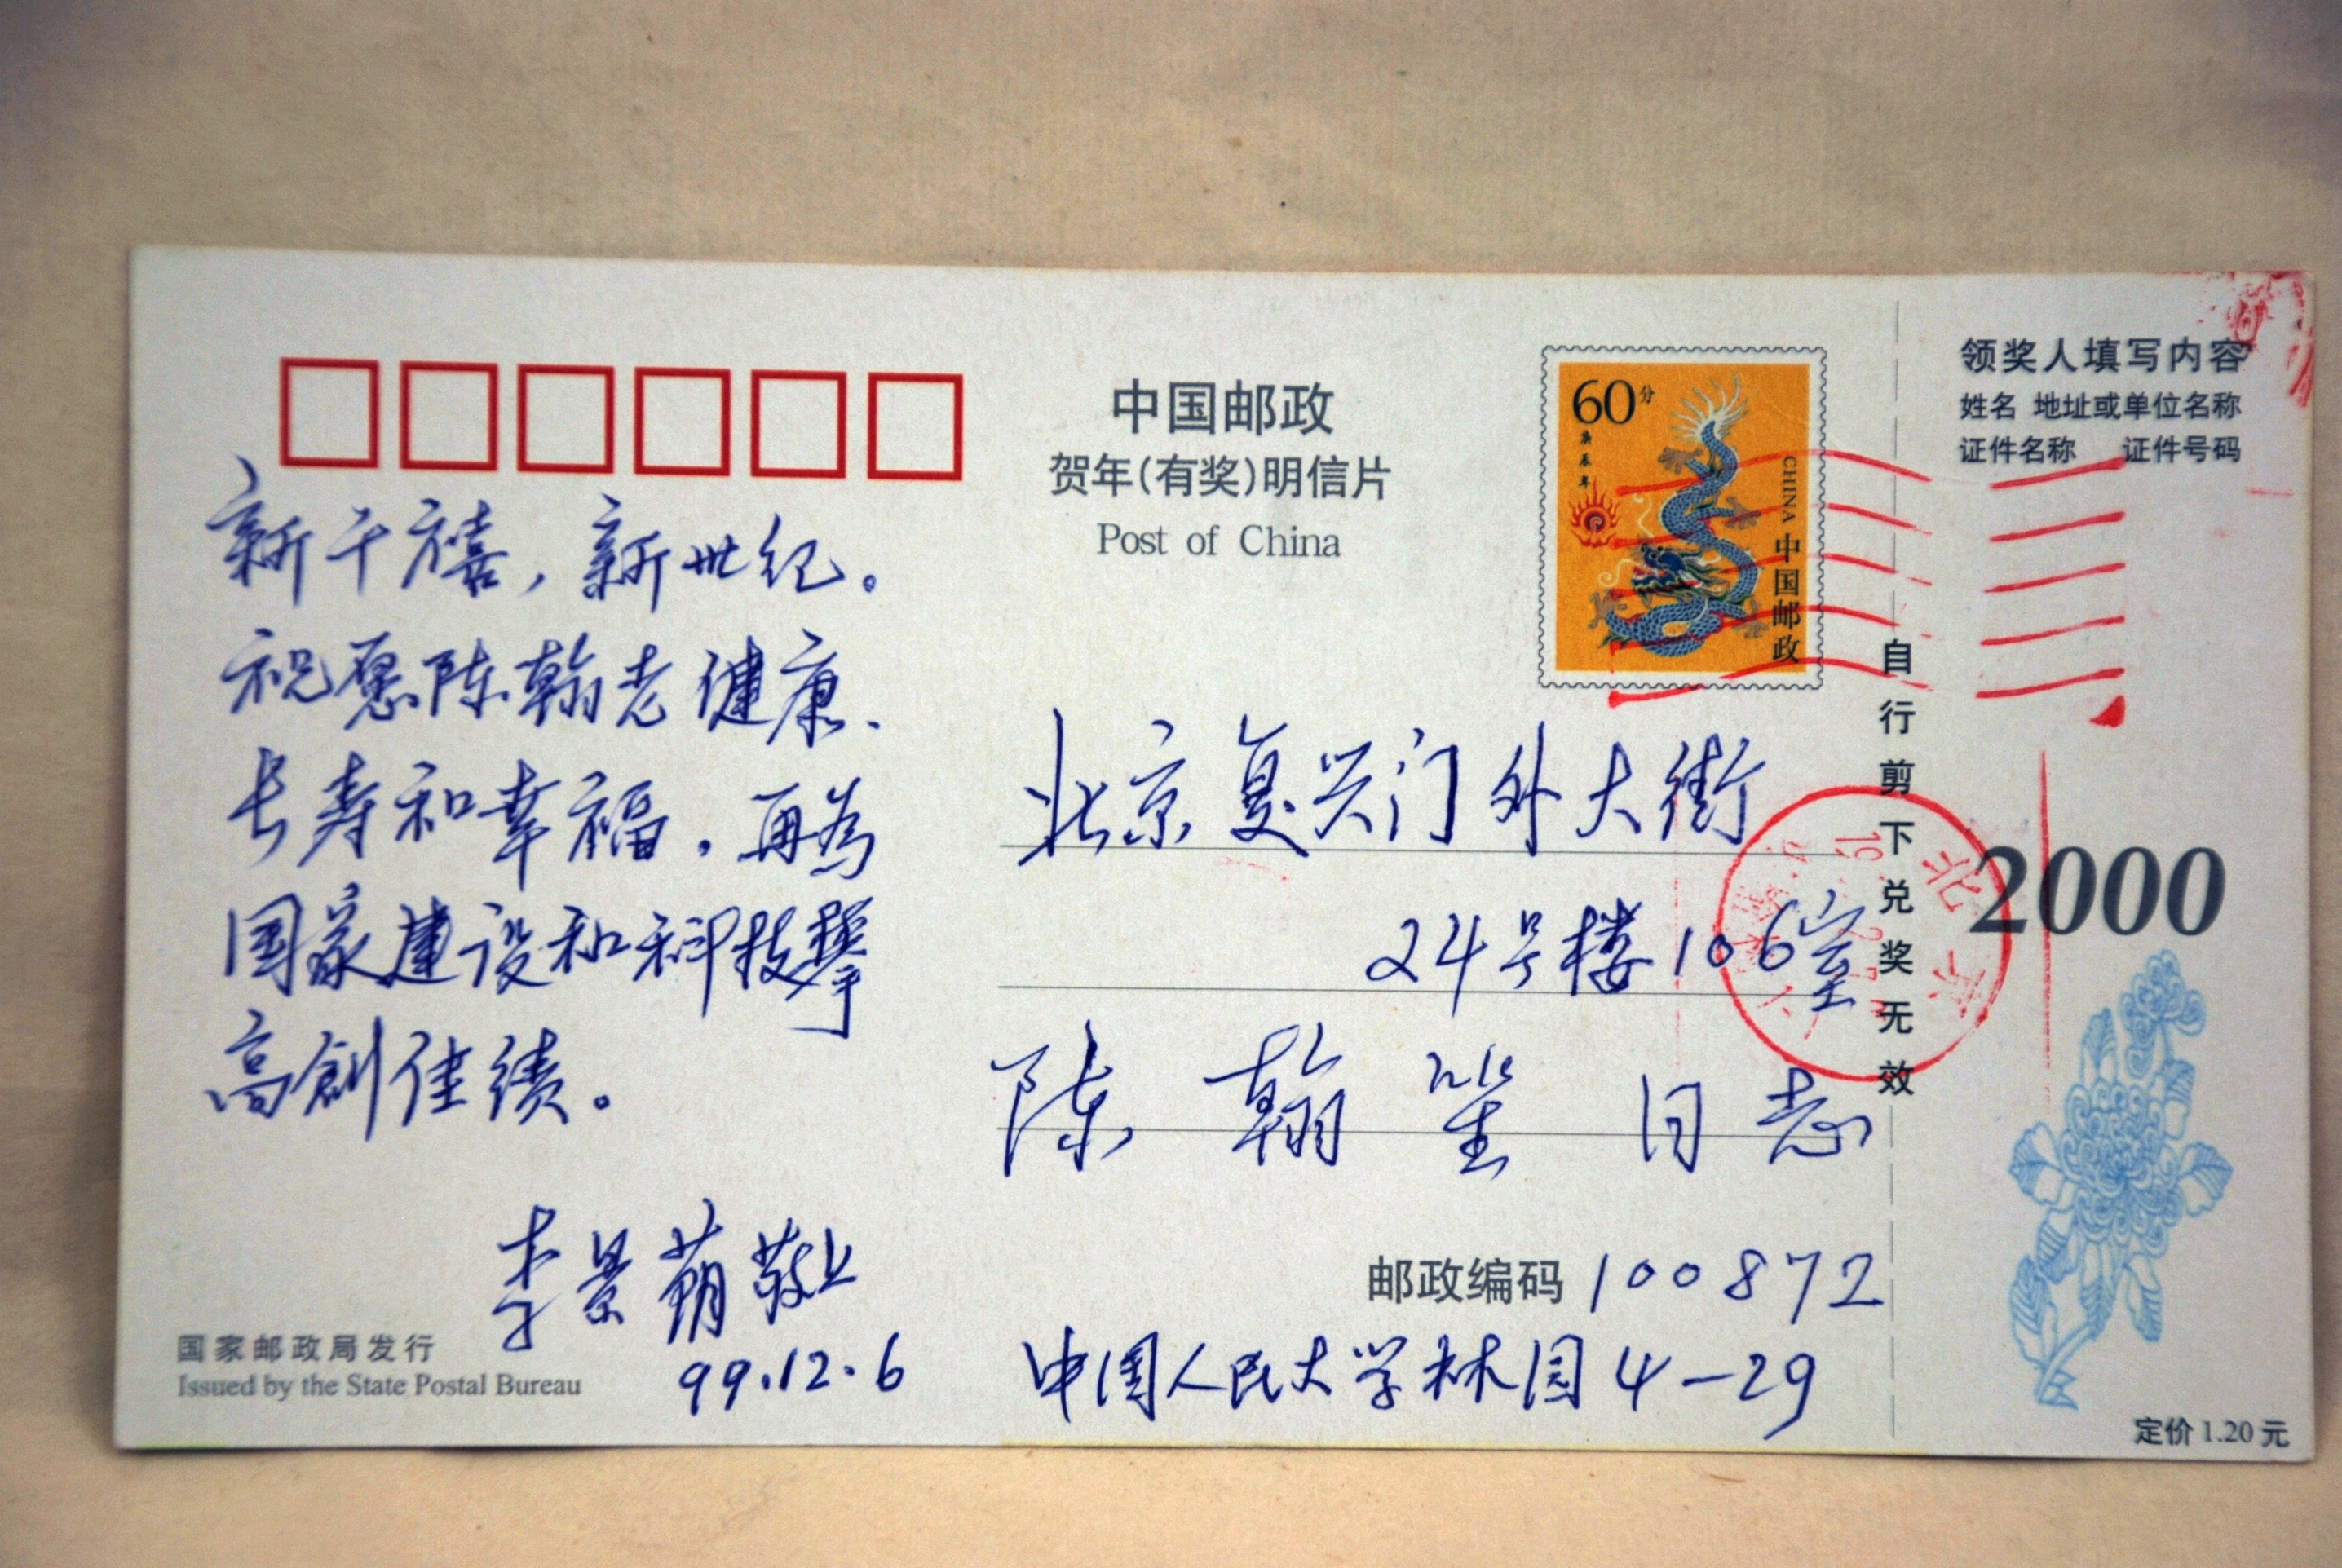 中国邮政
贺年(有奖)明信片
Post of China
60分
庚辰年
CHINA 中国邮政
领奖人填写内容
姓名 地址或单位名称
证件名称 证件号码
自行剪下兑奖无效
2000
新千禧，新世纪。
祝愿陈翰老健康、
长寿和幸福，再为
国家建设和科技攀
高創佳绩。
李景 敬上
99.12.6
北京复兴门外大街
24号楼106室
陈翰笙同志
邮政编码 100872
中国人民大学林园4-29
国家邮政局发行
Issued by the State Postal Bureau
定价 1.20 元
北京